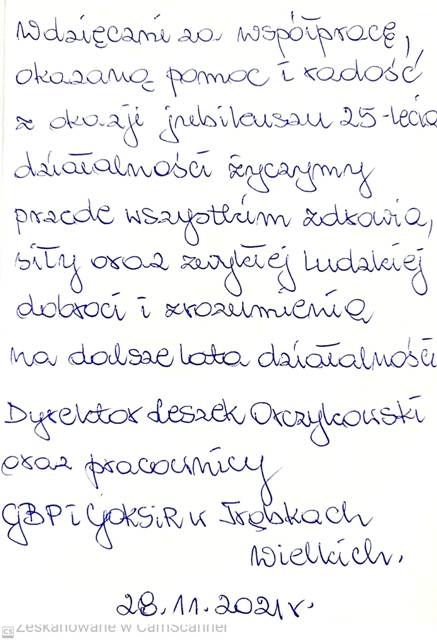 Wdzięczni za współpracę,
okazaną pomoc i radość
z okazji jubileuszu 25-lecia
działalności życzymy
przede wszystkim zdrowia,
siły oraz zwykłej ludzkiej
dobroci i zrozumienia
na dalsze lata działalności
Dyrektor Leszek Orczykowski
oraz pracownicy
GBP i GOKSiR w Trąbkach
Wielkich.
28.11.2021r.
CS Zeskanowane w CamScanner